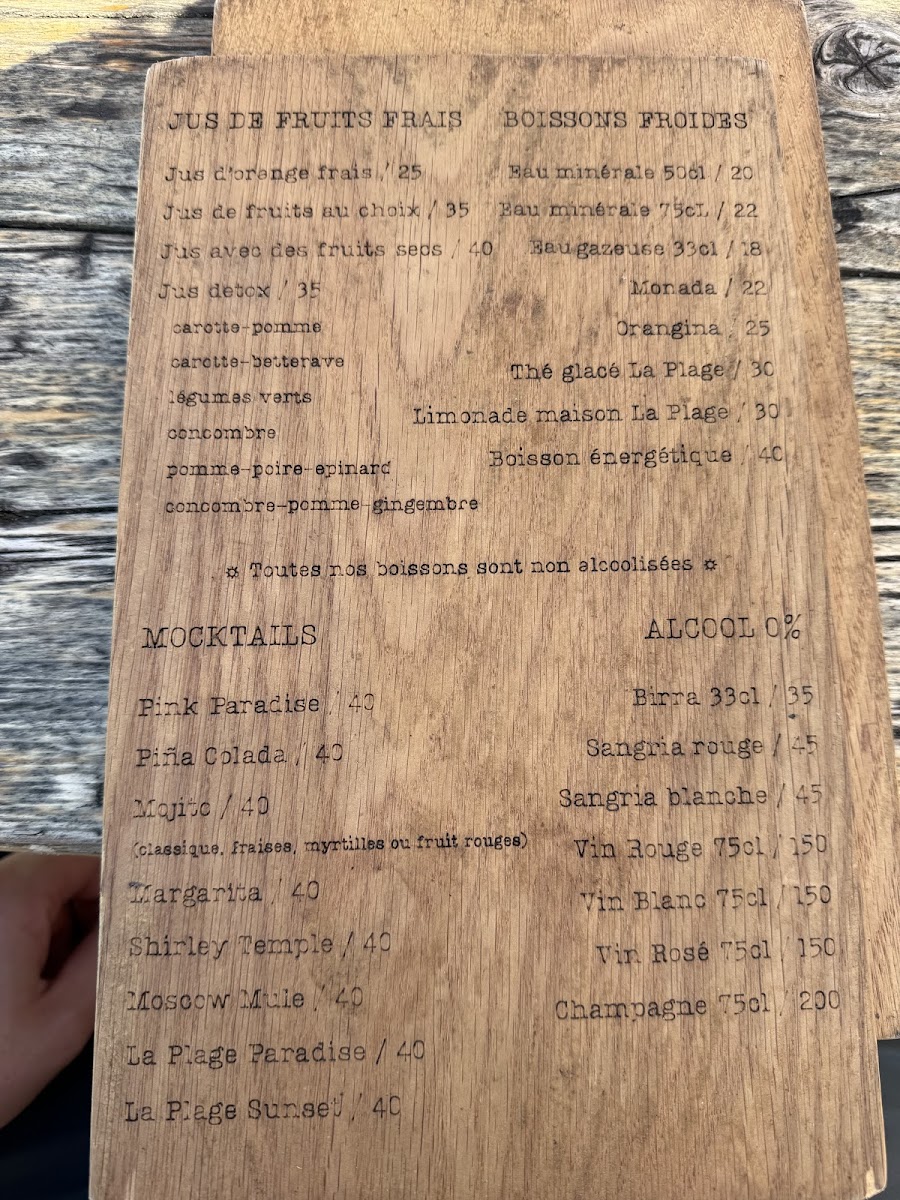 JUS DE FRUITS FRAIS
Jus d'orange frais / 25
Jus de fruits au choix / 35
Jus avec des fruits secs / 40
Jus detox / 35
carotte-pomme
carotte-betterave
légumes verts
concombre
pomme-poire-epinard
concombre-pomme-gingembre
BOISSONS FROIDES
Eau minérale 50cl / 20
Eau minérale 75cL / 22
Eau gazeuse 33cl / 18
Monada / 22
Orangina / 25
Thé glacé La Plage / 30
Limonade maison La Plage / 30
Boisson énergétique / 40
☼ Toutes nos boissons sont non alcoolisées ☼
MOCKTAILS
Pink Paradise / 40
Piña Colada / 40
Mojito / 40
(classique, fraises, myrtilles ou fruit rouges)
Margarita / 40
Shirley Temple / 40
Moscow Mule / 40
La Plage Paradise / 40
La Plage Sunset / 40
ALCOOL 0%
Birra 33cl / 35
Sangria rouge / 45
Sangria blanche / 45
Vin Rouge 75cl / 150
Vin Blanc 75cl / 150
Vin Rosé 75cl / 150
Champagne 75cl / 200